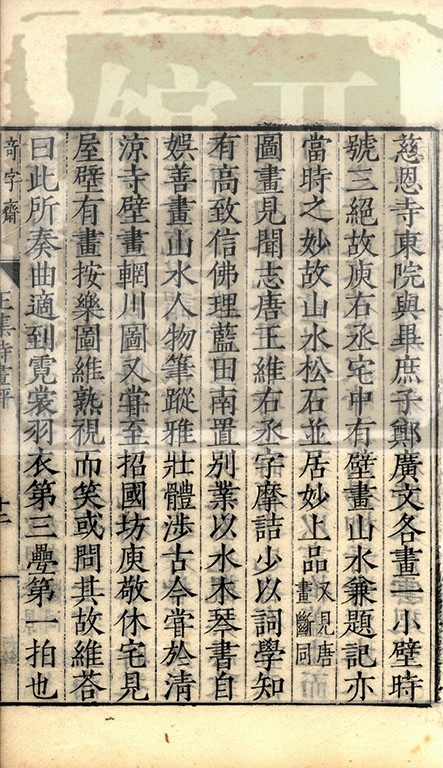 慈恩寺東院與畢庶子鄭廣文各畫一小壁時
號三絕故庾右丞宅中有壁畫山水兼題記亦
當時之妙故山水松石並居妙上品又見唐畫斷同
圖畫見聞志唐王維右丞字摩詰少以詞學知
有高致信佛理藍田南置別業以水木琴書自
娛善畫山水人物筆蹤雅壯體涉古今甞於清
涼寺壁畫輞川圖又甞至招國坊庾敬休宅見
屋壁有畫按樂圖維熟視而笑或問其故維荅
曰此所奏曲適到霓裳羽衣第三疊第一拍也
奇字齋